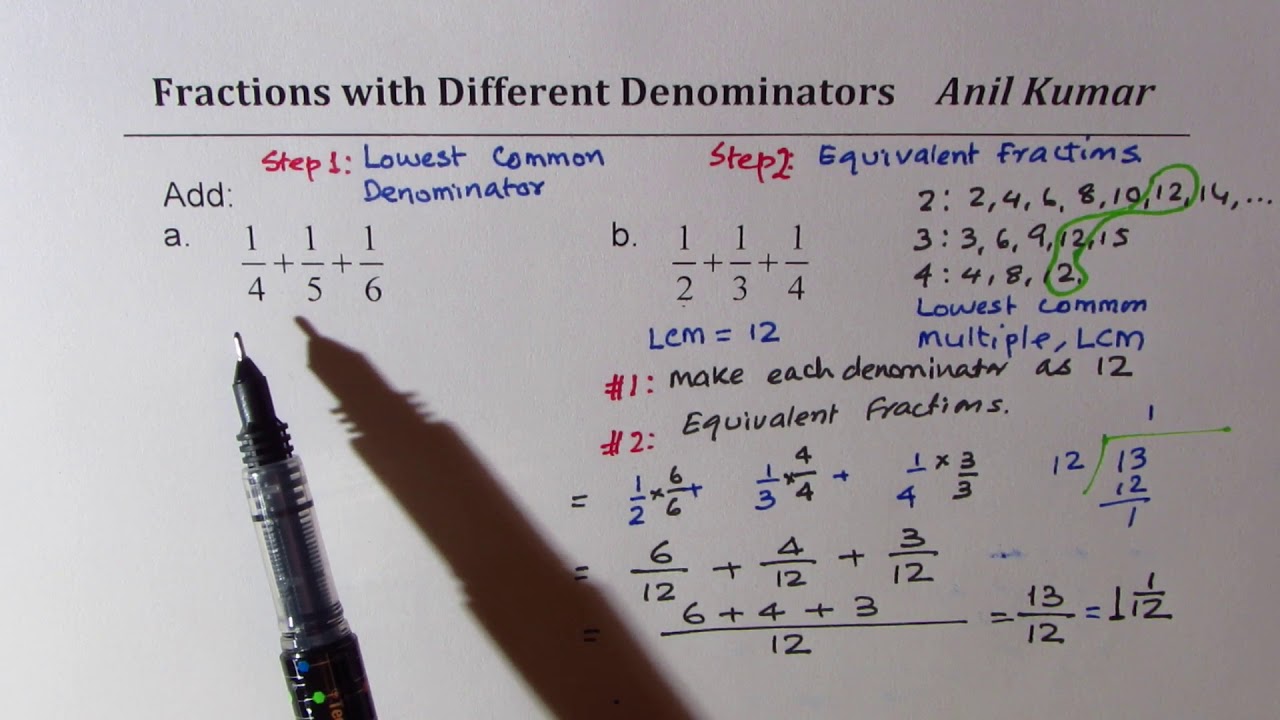 Fractions with Different Denominators Anil Kumar
Step 1: Lowest Common
Denominator
Step 2: Equivalent Fractims.
Add:
a. 1/4 + 1/5 + 1/6
b. 1/2 + 1/3 + 1/4
2: 2, 4, 6, 8, 10, 12, 14, ...
3: 3, 6, 9, 12, 15
4: 4, 8, 12.
Lowest common
multiple, LCM
LCM = 12
#1: make each denominator as 12
Equivalent Fractims.
#2:
= 1/2 × 6/6 + 1/3 × 4/4 + 1/4 × 3/3
1
12 13
12
1
= 6/12 + 4/12 + 3/12
= 6 + 4 + 3 / 12 = 13/12 = 1 1/12